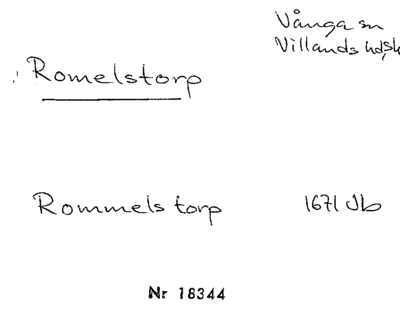 Vånga sn
Villands hd, Sk
Romelstorp
Rommelstorp 1671 Jb
Nr 18344